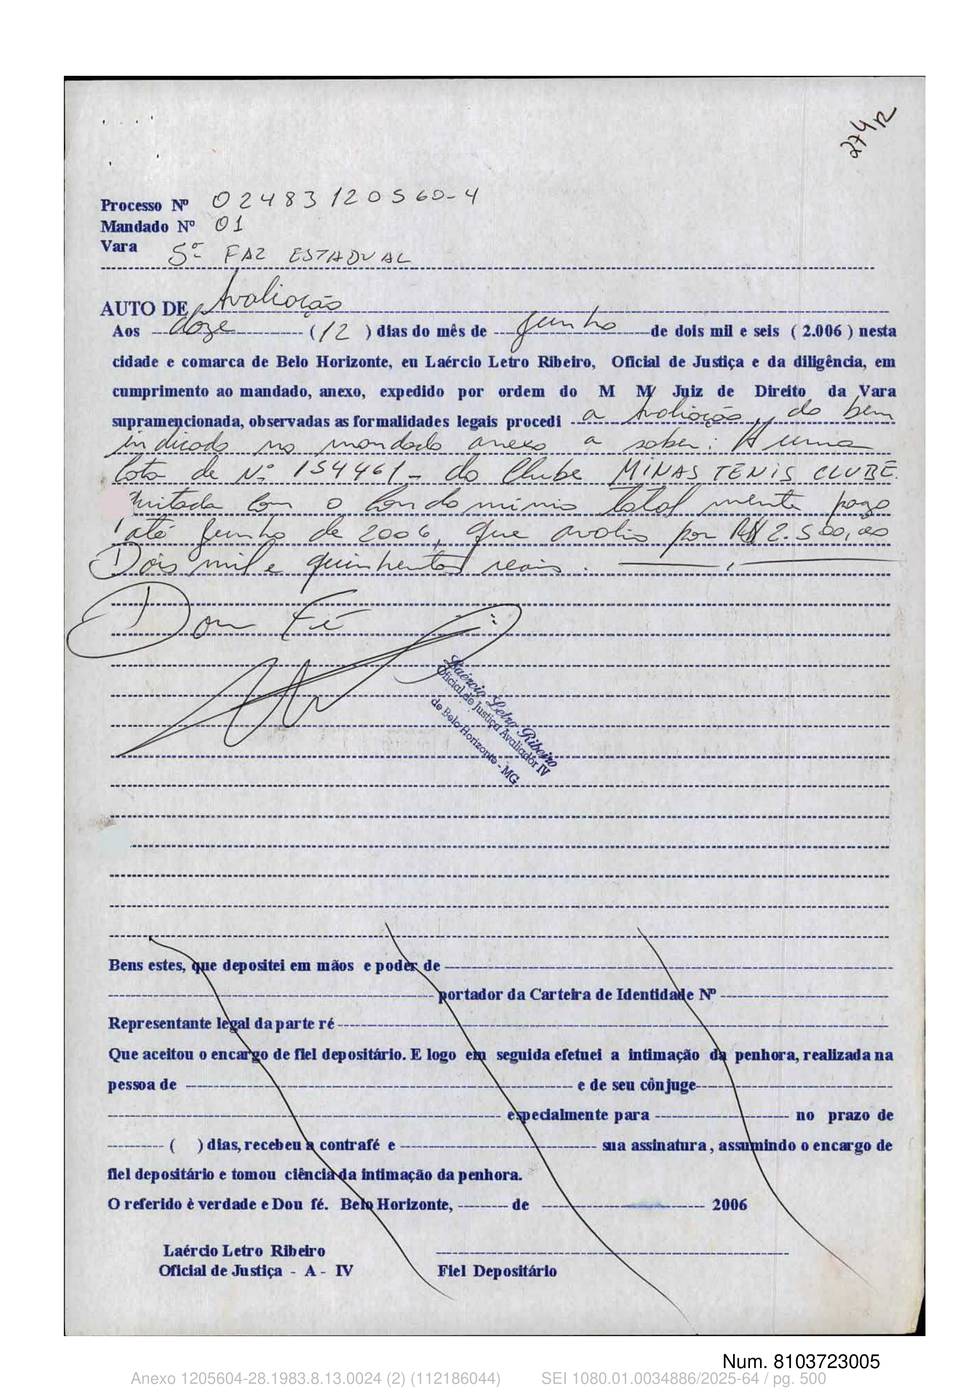 274 R
Processo Nº 02483120560-4
Mandado Nº 01
Vara 5ª FAZ ESTADUAL
AUTO DE Avaliação
Aos doze (12) dias do mês de junho de dois mil e seis ( 2.006 ) nesta
cidade e comarca de Belo Horizonte, eu Laércio Letro Ribeiro, Oficial de Justiça e da diligência, em
cumprimento ao mandado, anexo, expedido por ordem do M M Juiz de Direito da Vara
supramencionada, observadas as formalidades legais procedi a Avaliação, do bem
indicado no mandado anexo a saber: A uma
Cota de Nº 154461 - do Clube MINAS TENIS CLUBE.
Quitada com o Condominio total mente pago
até junho de 2006, que avalio por R$ 2.500,00
Dois mil e quinhentos reais.
Dou Fé
Laércio Letro Ribeiro
Oficial de Justiça Avaliador IV
de Belo Horizonte - MG
Bens estes, que depositei em mãos e poder de
portador da Carteira de Identidade Nº
Representante legal da parte ré
Que aceitou o encargo de fiel depositário. E logo em seguida efetuei a intimação da penhora, realizada na
pessoa de e de seu cônjuge
especialmente para no prazo de
( ) dias, recebeu a contrafé e sua assinatura, assumindo o encargo de
fiel depositário e tomou ciência da intimação da penhora.
O referido è verdade e Dou fé. Belo Horizonte, de 2006
Laércio Letro Ribeiro
Oficial de Justiça - A - IV Fiel Depositário
Num. 8103723005
Anexo 1205604-28.1983.8.13.0024 (2) (112186044) SEI 1080.01.0034886/2025-64 / pg. 500